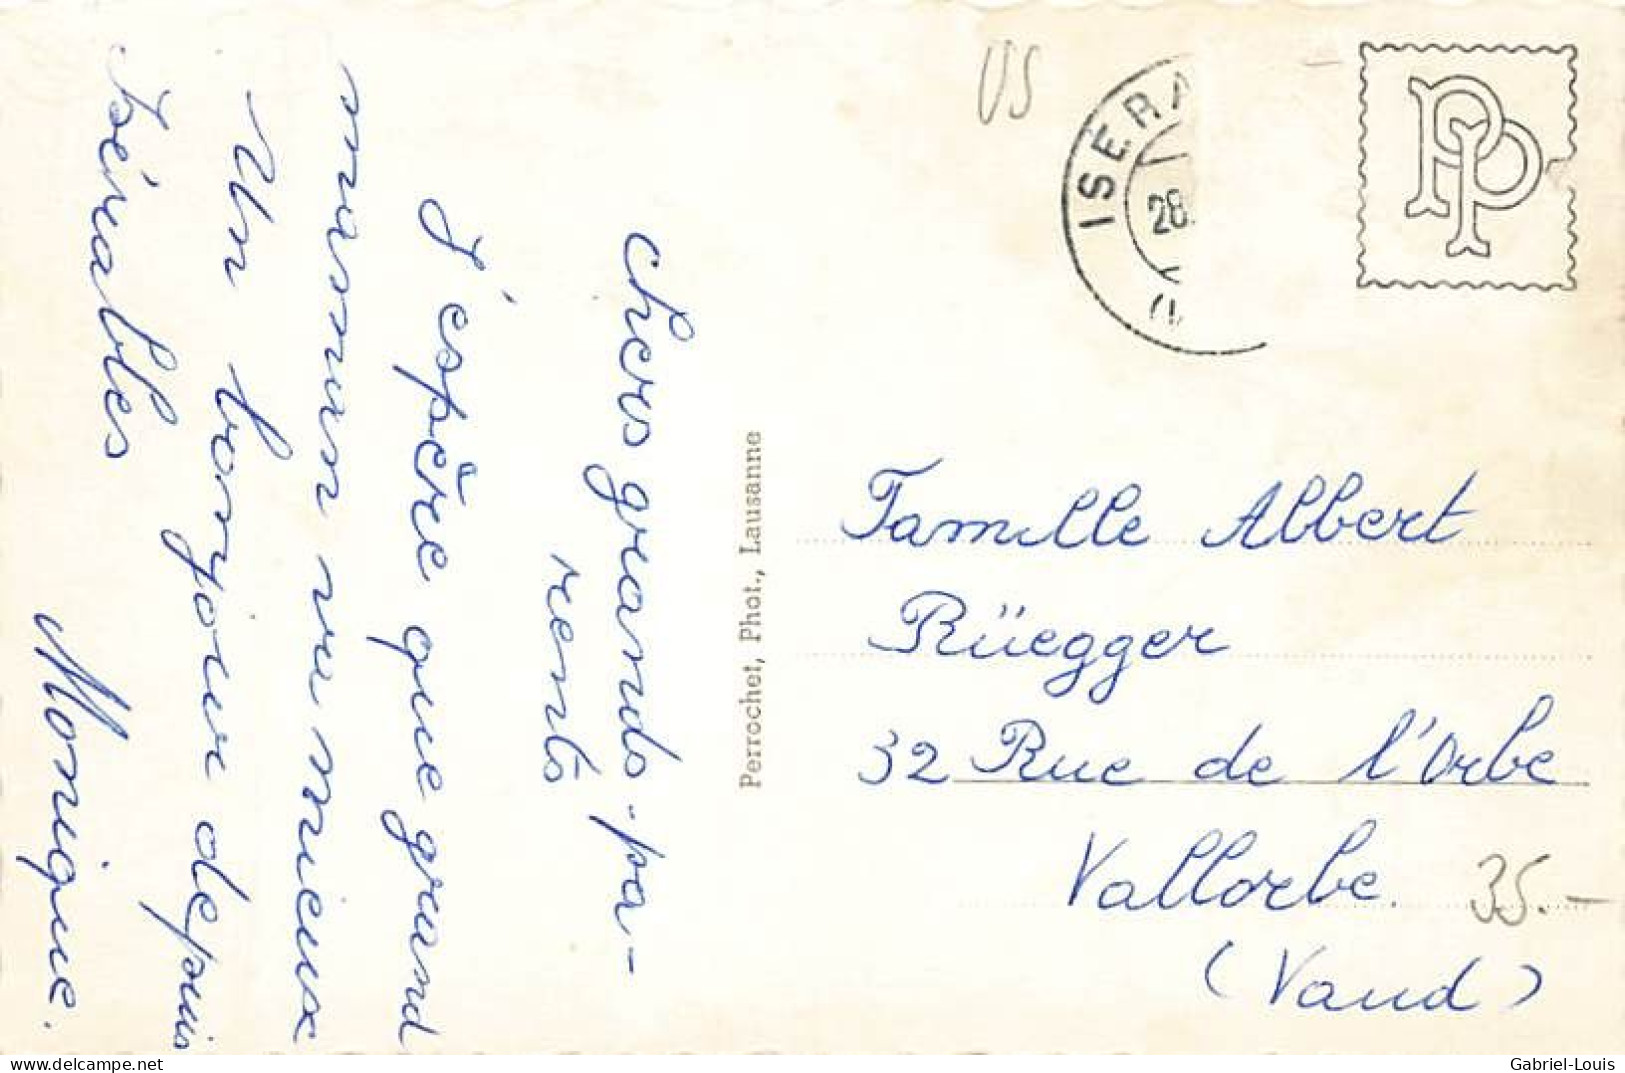 Chers grands-pa-
rents
J'éspère que grand
maman va mieux
Un bonjour depuis
Isérables
Monique.
Perrochet, Phot., Lausanne
US
ISERA
28.
PP
Famille Albert
Rüegger
32 Rue de l'Orbe
Vallorbe
35.-
(Vaud)
delcampe.net
Gabriel-Louis